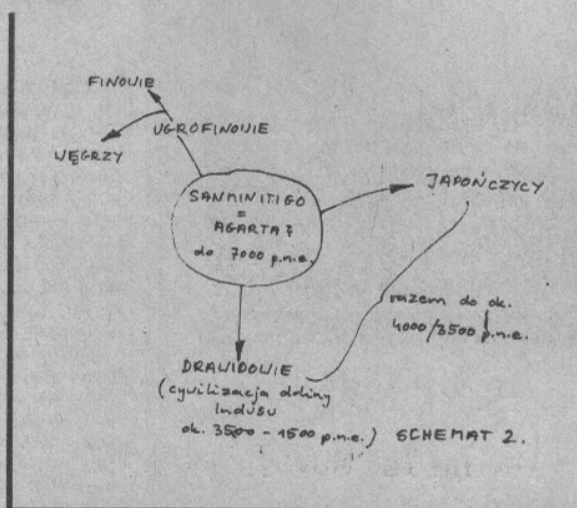 FINOWIE
UGROFINOWIE
WĘGRZY
SANMINITIGO
=
AGARTA?
do 7000 p.n.e.
JAPOŃCZYCY
razem do ok.
4000/3500 p.n.e.
DRAWIDOWIE
(cywilizacja doliny
Indusu
ok. 3500 - 1500 p.n.e.) SCHEMAT 2.